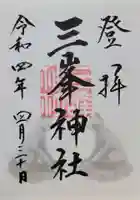 登拝
三峯神社
令和四年四月三十日